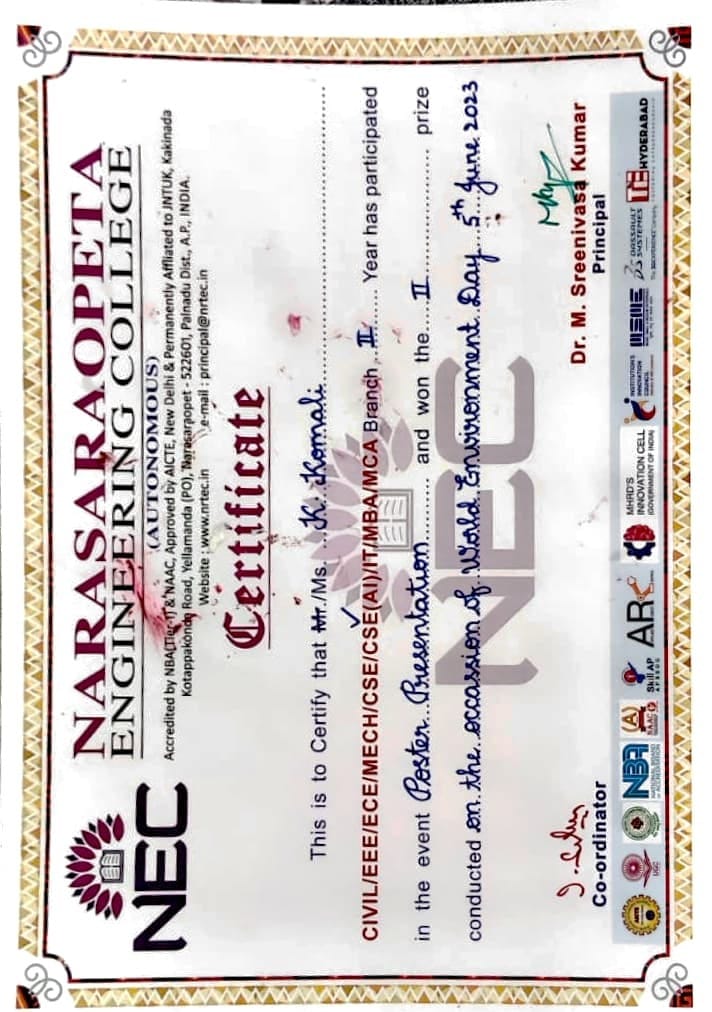 NEC
NARASARAOPETA
ENGINEERING COLLEGE
(AUTONOMOUS)
Accredited by NBA(Tier-1) & NAAC, Approved by AICTE, New Delhi & Permanently Affliated to JNTUK, Kakinada
Kotappakonda Road, Yellamanda (PO), Narasaraopet - 522601, Palnadu Dist., A.P., INDIA.
Website : www.nrtec.in e-mail : principal@nrtec.in
Certificate
This is to Certify that Mr./Ms. K. Komali
CIVIL/EEE/ECE/MECH/CSE/CSE(AI)/IT/MBA/MCA Branch II Year has participated
in the event Poster Presentation and won the II prize
conducted on the occassion of World Environment Day 5th June 2023
NEC
Co-ordinator
Dr. M. Sreenivasa Kumar
Principal
UGC
NBA
NATIONAL BOARD
OF ACCREDITATION
NAAC
Skill AP
ARC
MHRD'S
INNOVATION CELL
(GOVERNMENT OF INDIA)
INSTITUTION'S
INNOVATION
COUNCIL
MSME
DASSAULT
SYSTEMES
HYDERABAD